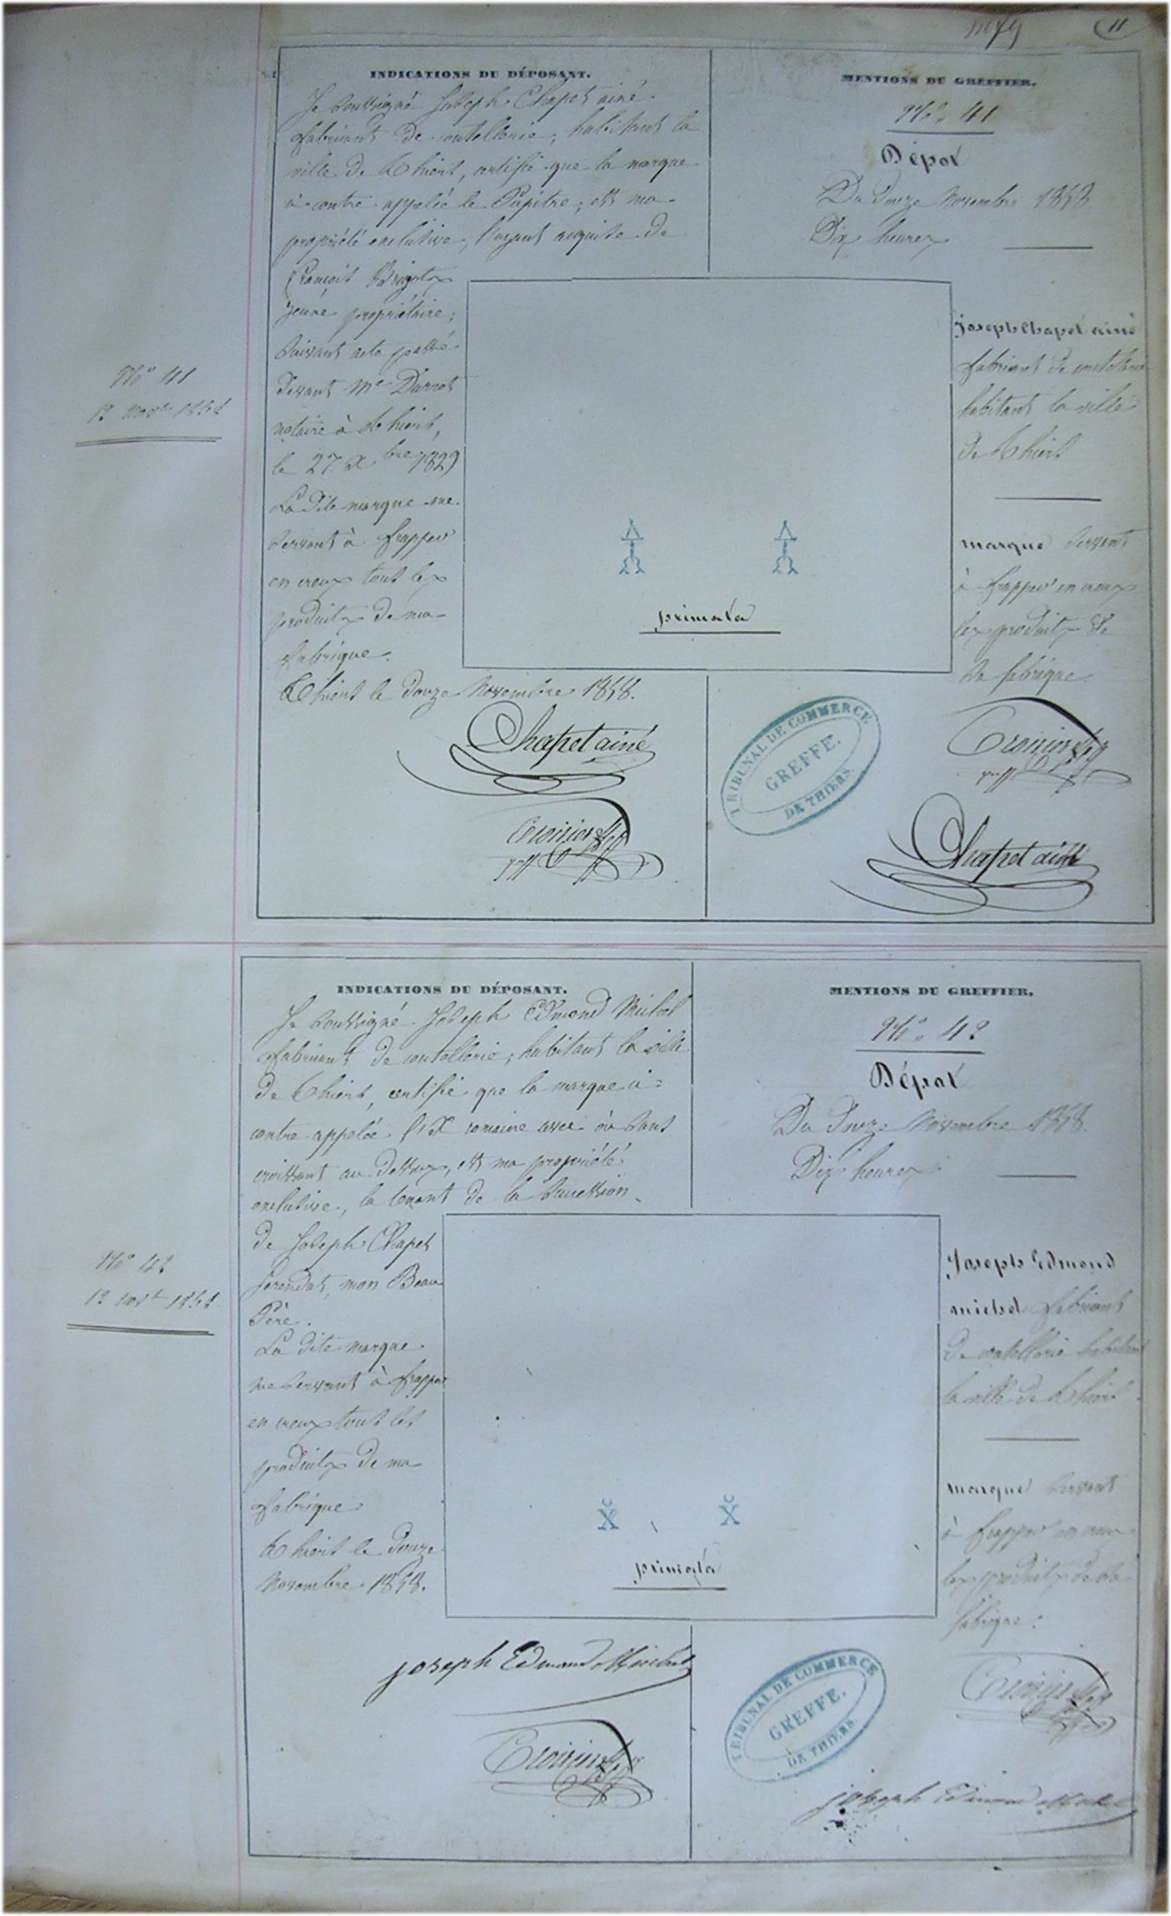 11
INDICATIONS DU DÉPOSANT.
Je soussigné Joseph Chapet ainé
fabricant de coutellerie, habitant la
ville de Thiers, certifie que la marque
ci-contre appelée le Pupitre, est ma
propriété exclusive, l'ayant acquise de
François
jeune propriétaire,
suivant acte passé
devant Me
notaire à Thiers,
le 27 Xbre 1829
La dite marque me
servant à frapper
en creux tout les
produits de ma
fabrique.
Thiers le douze Novembre 1858.
Chapet ainé
MENTIONS DU GREFFIER.
No. 41
Dépot
Du douze Novembre 1858
Dix heures
Joseph Chapet ainé
fabricant de coutellerie
habitant la ville
de Thiers
marque servant
à frapper en creux
les produits de
sa fabrique
TRIBUNAL DE COMMERCE
GREFFE.
DE THIERS.
Chapet ainé
primata
No 41
12 novbre 1858
INDICATIONS DU DÉPOSANT.
Je soussigné Joseph Edmond Michel
fabricant de coutellerie, habitant la ville
de Thiers, certifie que la marque ci-
contre appelée l'X romaine avec ou sans
croissant au dessus, est ma propriété
exclusive, la tenant de la succession
de Joseph Chapet
mon Beau
Père.
La dite marque
me servant à frapper
en creux tout les
produits de ma
fabrique
Thiers le douze
Novembre 1858.
Joseph Edmond Michel
MENTIONS DU GREFFIER.
No. 42
Dépot
Du douze Novembre 1858.
Dix heures
Joseph Edmond
michel fabricant
de coutellerie habitant
la ville de Thiers
marque servant
à frapper en creux
les produits de sa
fabrique.
X X
primata
TRIBUNAL DE COMMERCE
GREFFE.
DE THIERS.
Joseph Edmond Michel
No 42
12 novbre 1858